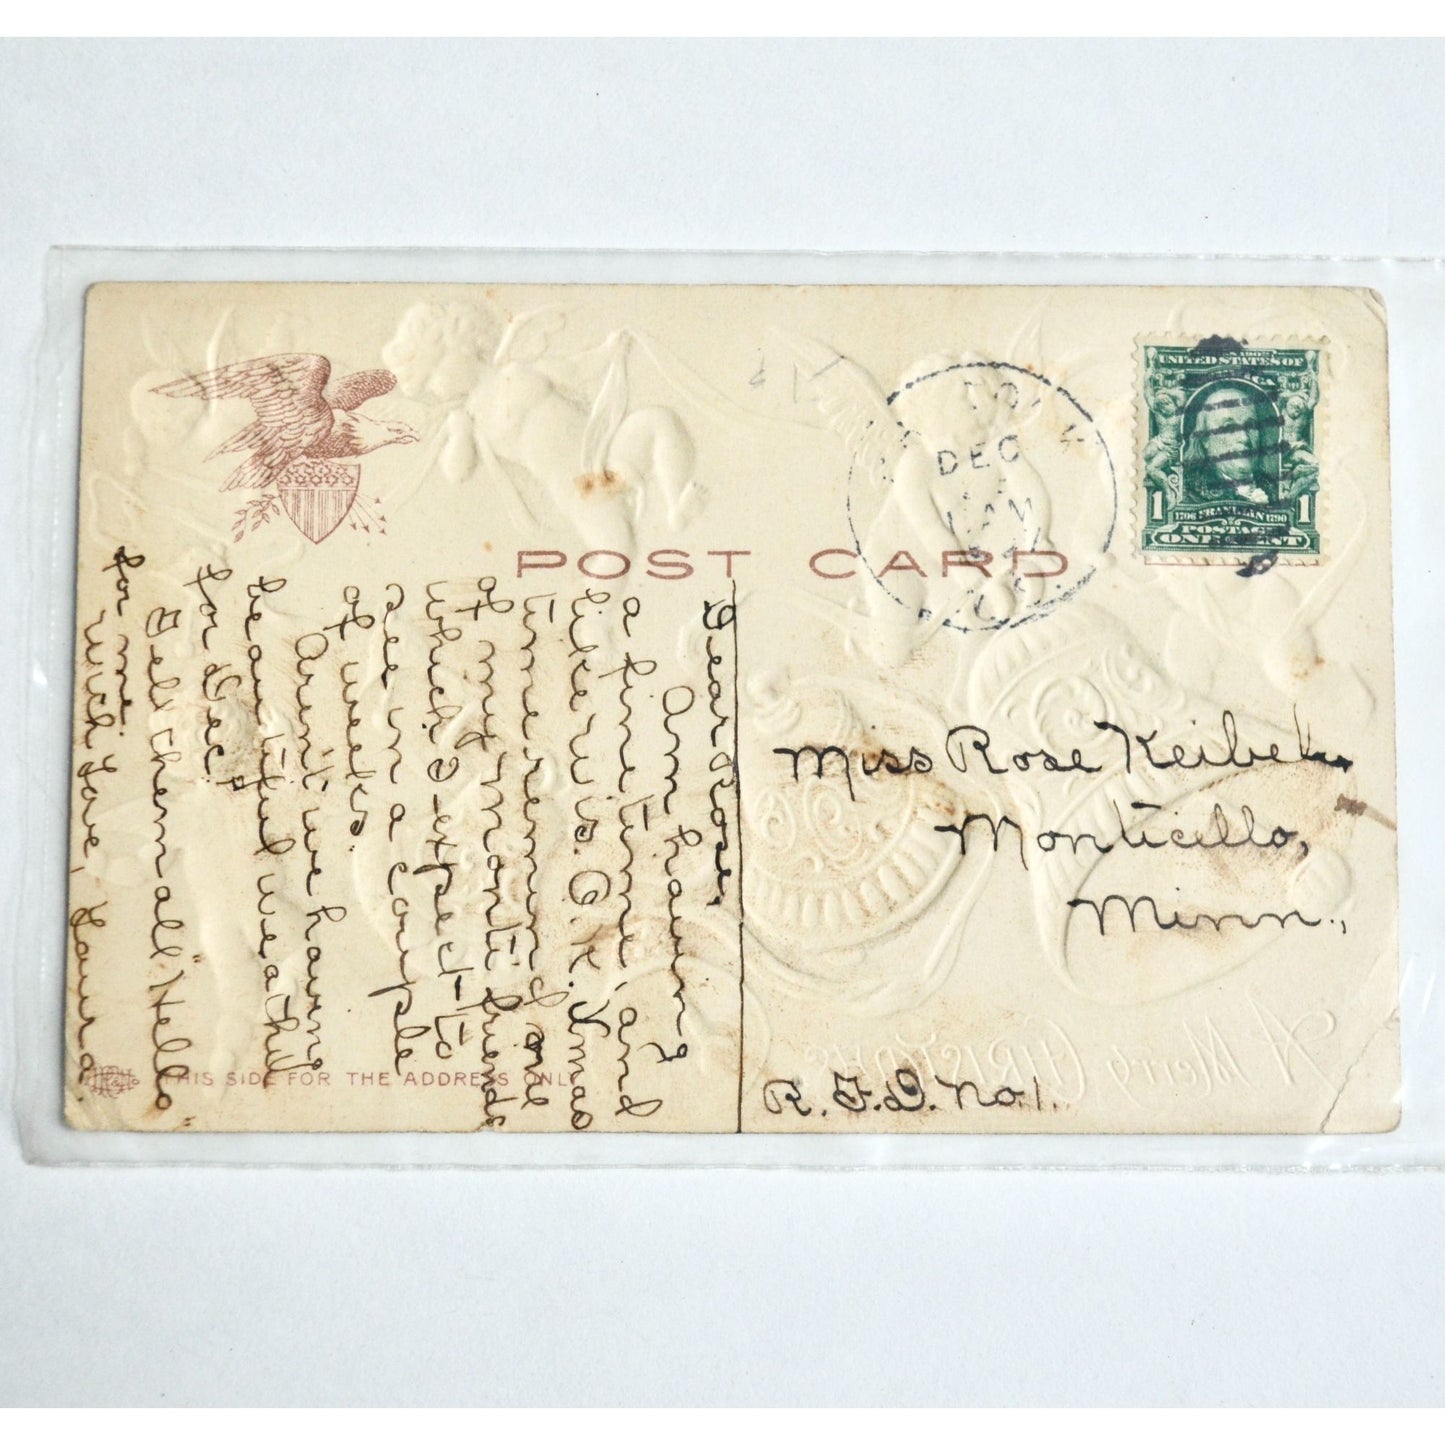 POST CARD
DEC
AM
SERIES 1902
UNITED STATES OF
AMERICA
1 1
1706 FRANKLIN 1790
POSTAGE
ONE CENT
Dear Rose,
Am having
a fine time, and
likewis. O.K. Xmas
time remind me
of my Monti friends
which I expect to
see in a couple
of weeks.
Arent we having
beautiful weather
for Dec?
Tell them all "Hello"
for me.
With Love, Laura.
Miss Rose Keibel
Monticello,
Minn.,
R.F.D. No. 1.
THIS SIDE FOR THE ADDRESS ONLY
A Merry Christmas